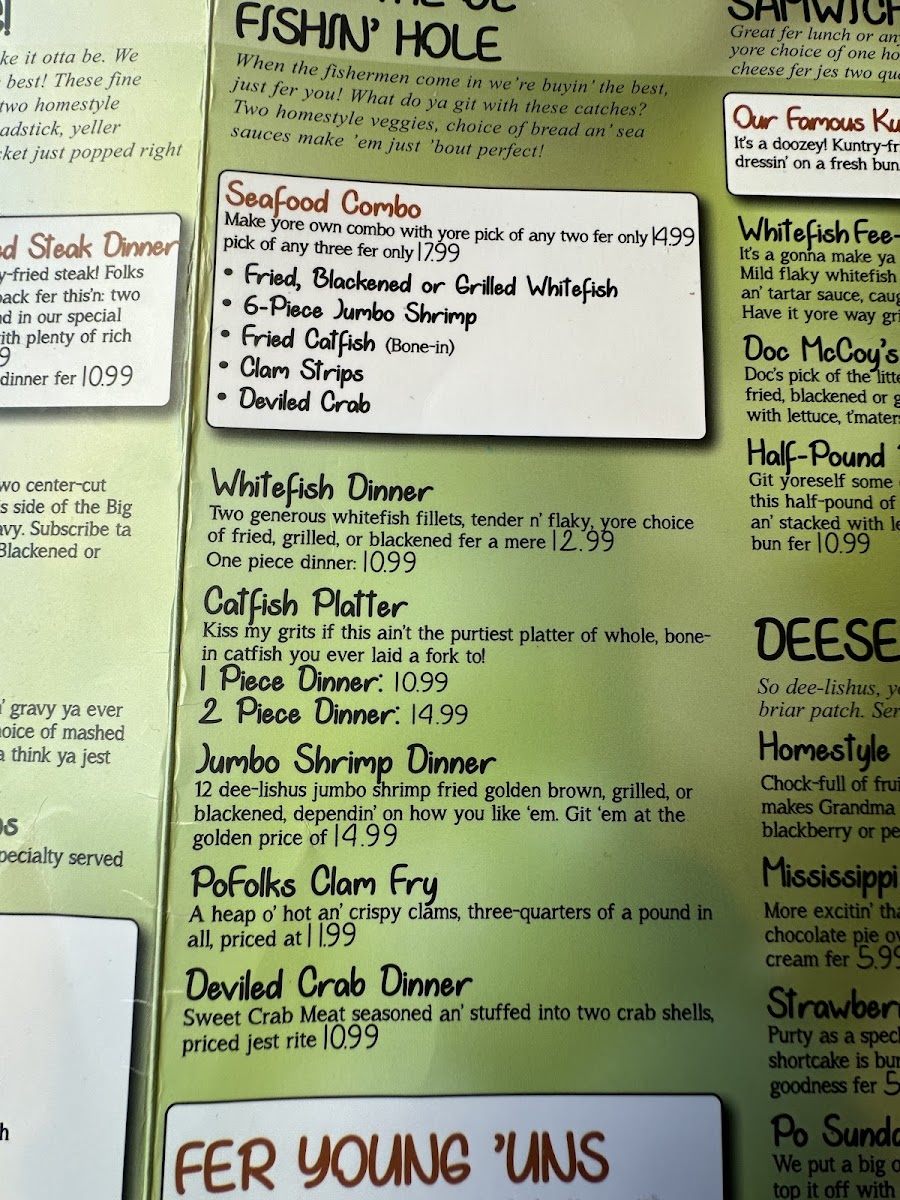 ke it otta be. We
best! These fine
two homestyle
adstick, yeller
ket just popped right
ed Steak Dinner
y-fried steak! Folks
back fer this'n: two
nd in our special
ith plenty of rich
9
dinner fer 10.99
wo center-cut
s side of the Big
avy. Subscribe ta
Blackened or
' gravy ya ever
hoice of mashed
a think ya jest
os
pecialty served
h
FISHIN' HOLE
When the fishermen come in we're buyin' the best,
just fer you! What do ya git with these catches?
Two homestyle veggies, choice of bread an' sea
sauces make 'em just 'bout perfect!
Seafood Combo
Make yore own combo with yore pick of any two fer only 14.99
pick of any three fer only 17.99
• Fried, Blackened or Grilled Whitefish
• 6-Piece Jumbo Shrimp
• Fried Catfish (Bone-in)
• Clam Strips
• Deviled Crab
Whitefish Dinner
Two generous whitefish fillets, tender n' flaky, yore choice
of fried, grilled, or blackened fer a mere 12.99
One piece dinner: 10.99
Catfish Platter
Kiss my grits if this ain't the purtiest platter of whole, bone-
in catfish you ever laid a fork to!
1 Piece Dinner: 10.99
2 Piece Dinner: 14.99
Jumbo Shrimp Dinner
12 dee-lishus jumbo shrimp fried golden brown, grilled, or
blackened, dependin' on how you like 'em. Git 'em at the
golden price of 14.99
PoFolks Clam Fry
A heap o' hot an' crispy clams, three-quarters of a pound in
all, priced at 11.99
Deviled Crab Dinner
Sweet Crab Meat seasoned an' stuffed into two crab shells,
priced jest rite 10.99
FER YOUNG 'UNS
SAMWICH
Great fer lunch or an
yore choice of one ho
cheese fer jes two qua
Our Famous Ku
It's a doozey! Kuntry-fr
dressin' on a fresh bun
Whitefish Fee-
It's a gonna make ya
Mild flaky whitefish
an' tartar sauce, caug
Have it yore way gri
Doc McCoy's
Doc's pick of the litte
fried, blackened or g
with lettuce, t'mater
Half-Pound
Git yoreself some
this half-pound of
an' stacked with le
bun fer 10.99
DEESE
So dee-lishus, y
briar patch. Ser
Homestyle
Chock-full of frui
makes Grandma
blackberry or pe
Mississippi
More excitin' tha
chocolate pie ov
cream fer 5.99
Strawberr
Purty as a spec
shortcake is bu
goodness fer 5
Po Sunda
We put a big o
top it off with